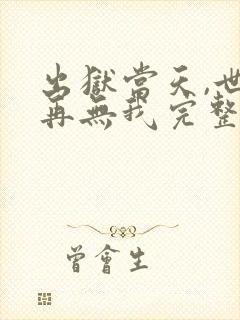 出獄當天,世
再無我完整
曾會生